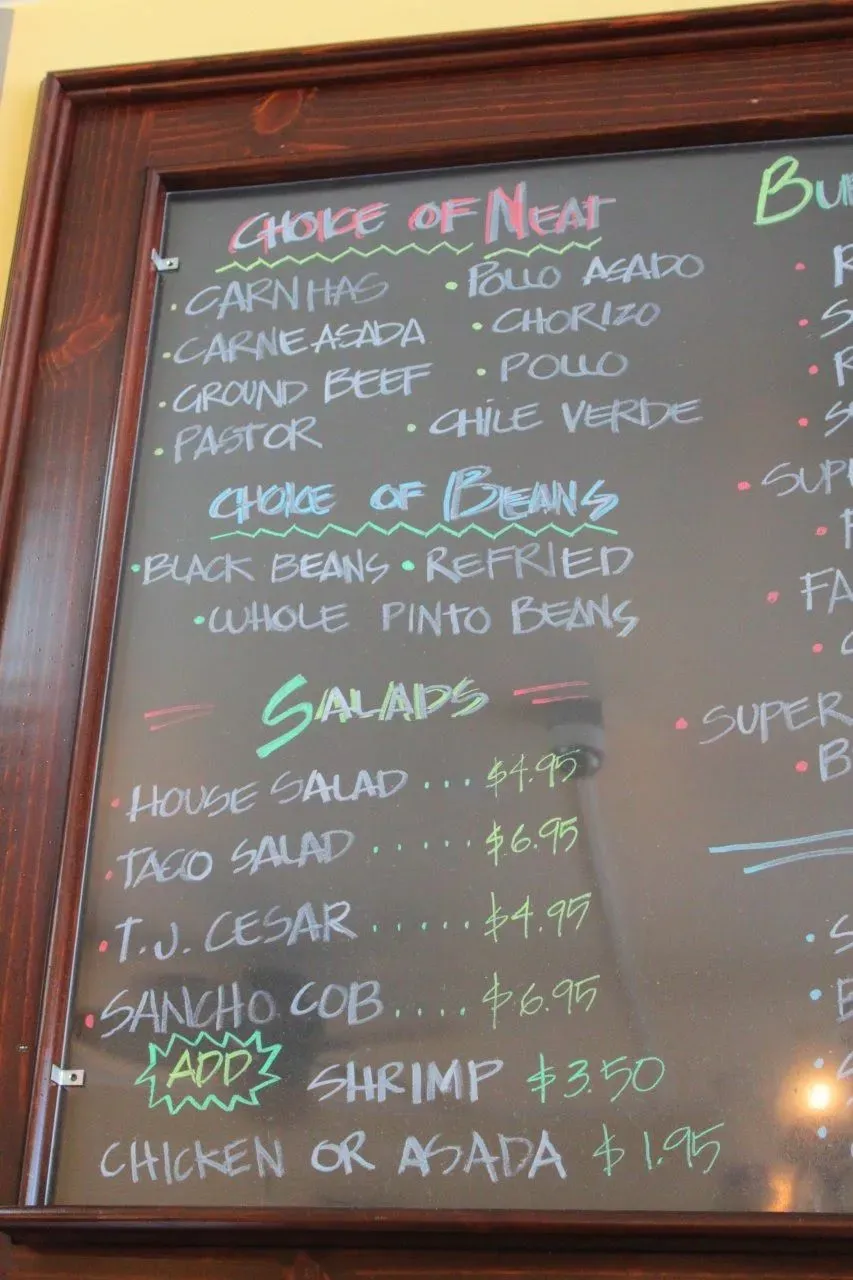 CHOICE OF MEAT
• CARNITAS • POLLO ASADO
• CARNE ASADA • CHORIZO
• GROUND BEEF • POLLO
• PASTOR • CHILE VERDE
CHOICE OF BEANS
• BLACK BEANS • REFRIED
• WHOLE PINTO BEANS
SALADS
• HOUSE SALAD ... $4.95
• TACO SALAD ...... $6.95
• T.J. CESAR ...... $4.95
• SANCHO COB .... $6.95
ADD SHRIMP $3.50
CHICKEN OR ASADA $1.95
• SUPER